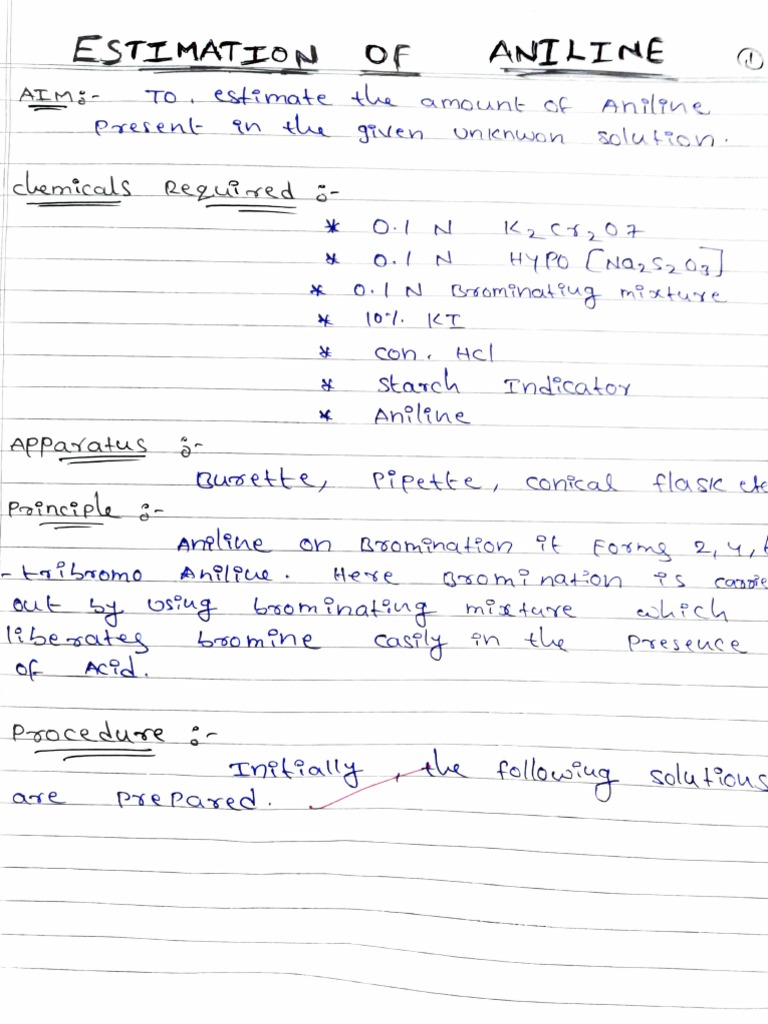 ESTIMATION OF ANILINE ①
AIM:- To. estimate the amount of Aniline
present in the given unknwon solution.
Chemicals Required :-
* 0.1 N K2Cr2O7
* 0.1 N HYPO [Na2S2O3]
* 0.1 N Brominating mixture
* 10% KI
* con. HCl
* Starch Indicator
* Aniline
Apparatus :-
Burette, Pipette, conical flask etc
Principle :-
Aniline on Bromination it Forms 2, 4,
- tribromo Aniline. Here Bromination is carrie
out by using brominating mixture which
liberates bromine easily in the presence
of Acid.
Procedure :-
Initially, the following solutions
are prepared.